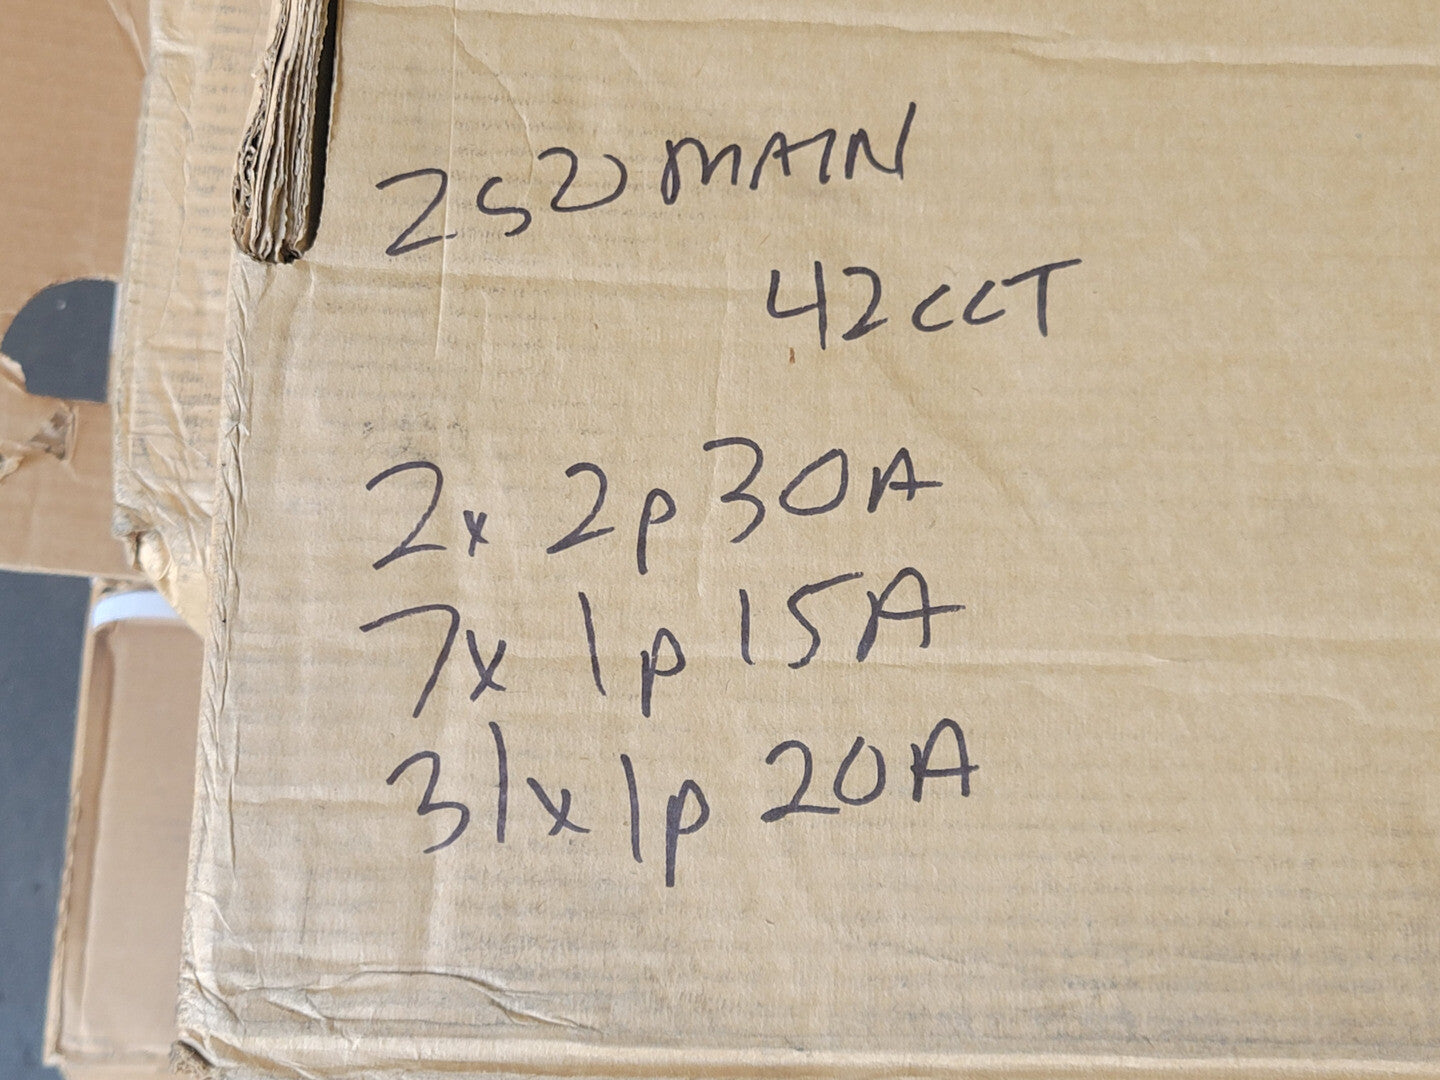 250 MAIN
42 CCT
2x 2p 30A
7x 1p 15A
31x 1p 20A